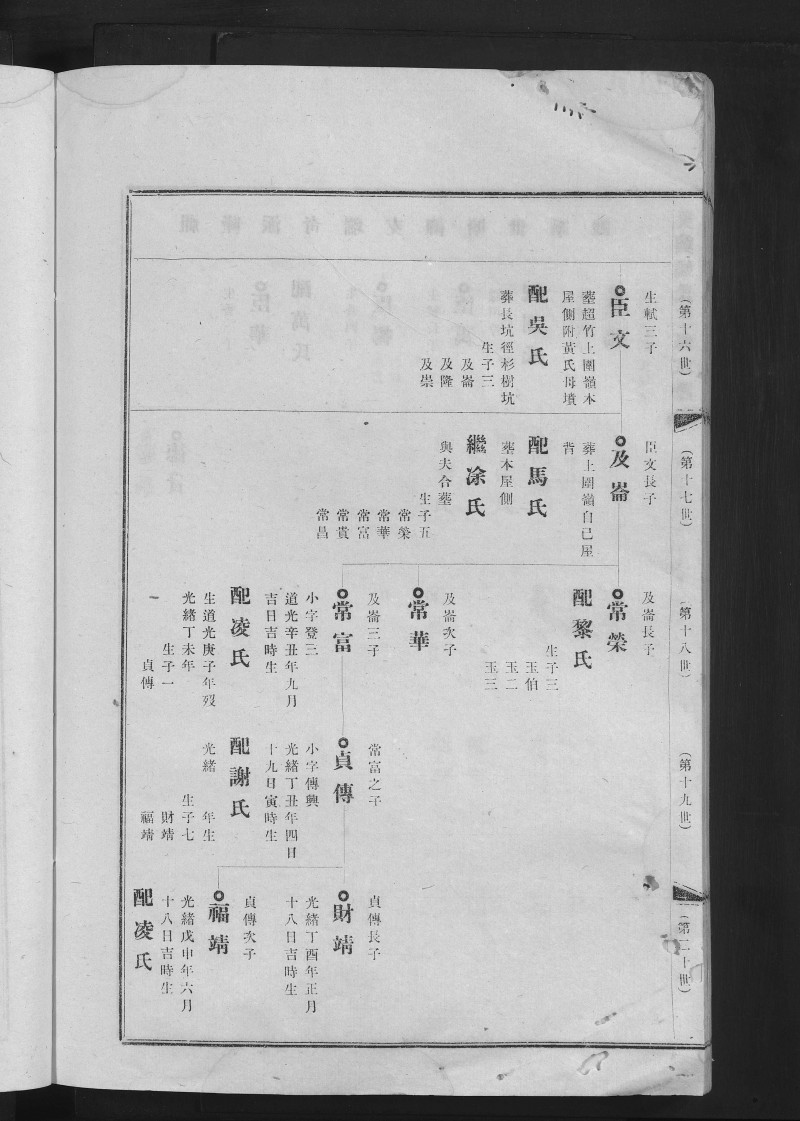 （第十六世）
生軾三子
臣文
葬超竹上圍嶺本
屋側附黃氏母墳
配吳氏
葬長坑徑杉樹坑
生子三
及崙
及隆
及崇
（第十七世）
臣文長子
及崙
葬上圍嶺自己屋
背
配馬氏
葬本屋側
繼凃氏
與夫合墓
生子五
常榮
常華
常富
常貴
常昌
（第十八世）
及崙長子
常榮
配黎氏
生子三
玉伯
玉二
玉三
及崙次子
常華
及崙三子
常富
小字發三
道光辛丑年九月
吉日吉時生
配凌氏
生道光庚子年歿
光緒丁未年
生子一
貞傳
（第十九世）
常富之子
貞傳
小字傳興
光緒丁丑年四日
十九日寅時生
配謝氏
光緒 年生
生子七
財靖
福靖
（第二十世）
貞傳長子
財靖
光緒丁酉年正月
十八日吉時生
貞傳次子
福靖
光緒戊申年六月
十八日吉時生
配凌氏